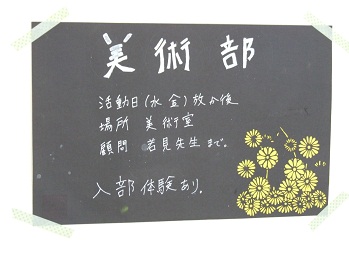 美術部
活動日(水金)放か後
場所 美術室
顧問 若見先生まで。
入部体験あり。